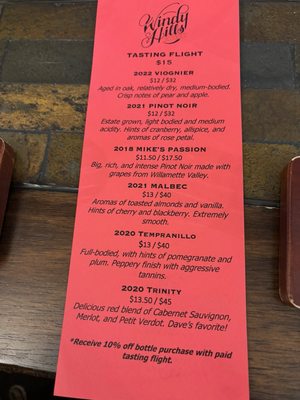 Windy
Hills
TASTING FLIGHT
$15
2022 VIOGNIER
$12 / $32
Aged in oak, relatively dry, medium-bodied.
Crisp notes of pear and apple.
2021 PINOT NOIR
$12 / $32
Estate grown, light bodied and medium
acidity. Hints of cranberry, allspice, and
aromas of rose petal.
2018 MIKE'S PASSION
$11.50 / $17.50
Big, rich, and intense Pinot Noir made with
grapes from Willamette Valley.
2021 MALBEC
$13 / $40
Aromas of toasted almonds and vanilla.
Hints of cherry and blackberry. Extremely
smooth.
2020 TEMPRANILLO
$13 / $40
Full-bodied, with hints of pomegranate and
plum. Peppery finish with aggressive
tannins.
2020 TRINITY
$13.50 / $45
Delicious red blend of Cabernet Sauvignon,
Merlot, and Petit Verdot. Dave's favorite!
*Receive 10% off bottle purchase with paid
tasting flight.